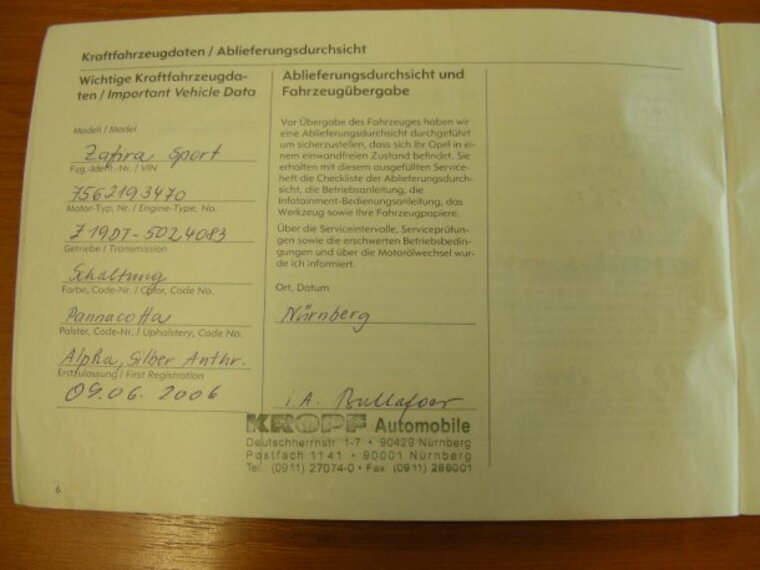 Kraftfahrzeugdaten / Ablieferungsdurchsicht
Wichtige Kraftfahrzeugda-
ten / Important Vehicle Data
Modell / Model
Zafira Sport
Fzg.-Ident.-Nr. / VIN
7562193470
Motor-Typ, Nr. / Engine-Type, No.
Z19DT-5024083
Getriebe / Transmission
Schaltung
Farbe, Code-Nr. / Color, Code No.
Pannacotta
Polster, Code-Nr. / Upholstery, Code No.
Alpha, Silber Anthr.
Erstzulassung / First Registration
09.06.2006
6
Ablieferungsdurchsicht und
Fahrzeugübergabe
Vor Übergabe des Fahrzeuges haben wir
eine Ablieferungsdurchsicht durchgeführt
um sicherzustellen, dass sich Ihr Opel in ei-
nem einwandfreien Zustand befindet. Sie
erhalten mit diesem ausgefüllten Service-
heft die Checkliste der Ablieferungsdurch-
sicht, die Betriebsanleitung, die
Infotainment-Bedienungsanleitung, das
Werkzeug sowie Ihre Fahrzeugpapiere.
Über die Serviceintervalle, Serviceprüfun-
gen sowie die erschwerten Betriebsbedin-
gungen und über die Motorölwechsel wur-
de ich informiert.
Ort, Datum
Nürnberg
i A.
KROPF Automobile
Deutschherrnstr. 1-7 • 90429 Nürnberg
Postfach 1141 • 90001 Nürnberg
Tel.: (0911) 27074-0 • Fax: (0911) 286001